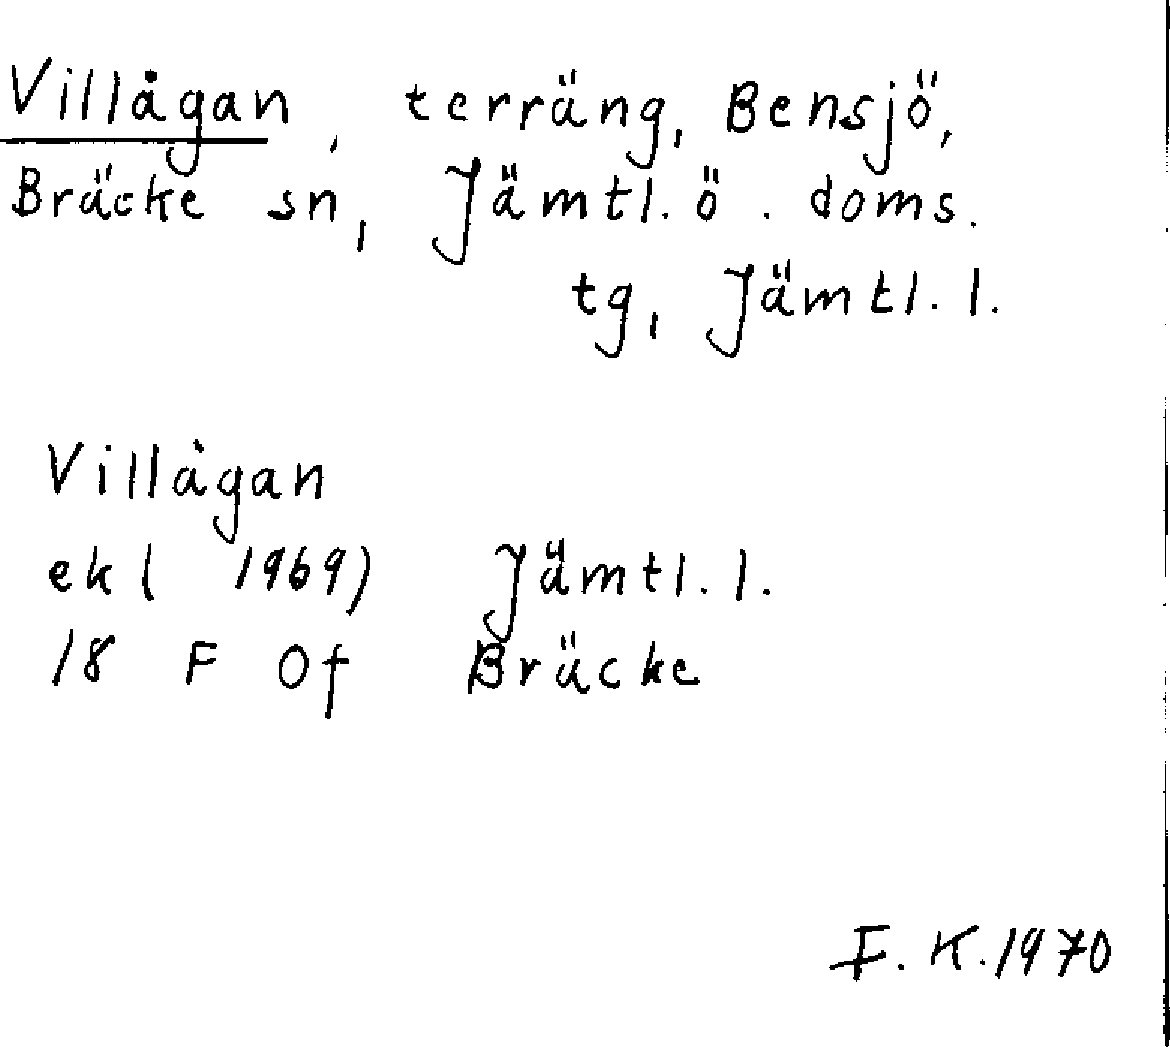 Villågan, terräng, Bensjö,
Bräcke sn, Jämtl. ö. doms.
tg, Jämtl. l.
Villågan
ek( 1969) Jämtl. l.
18 F 0f Bräcke
F. K. 1970